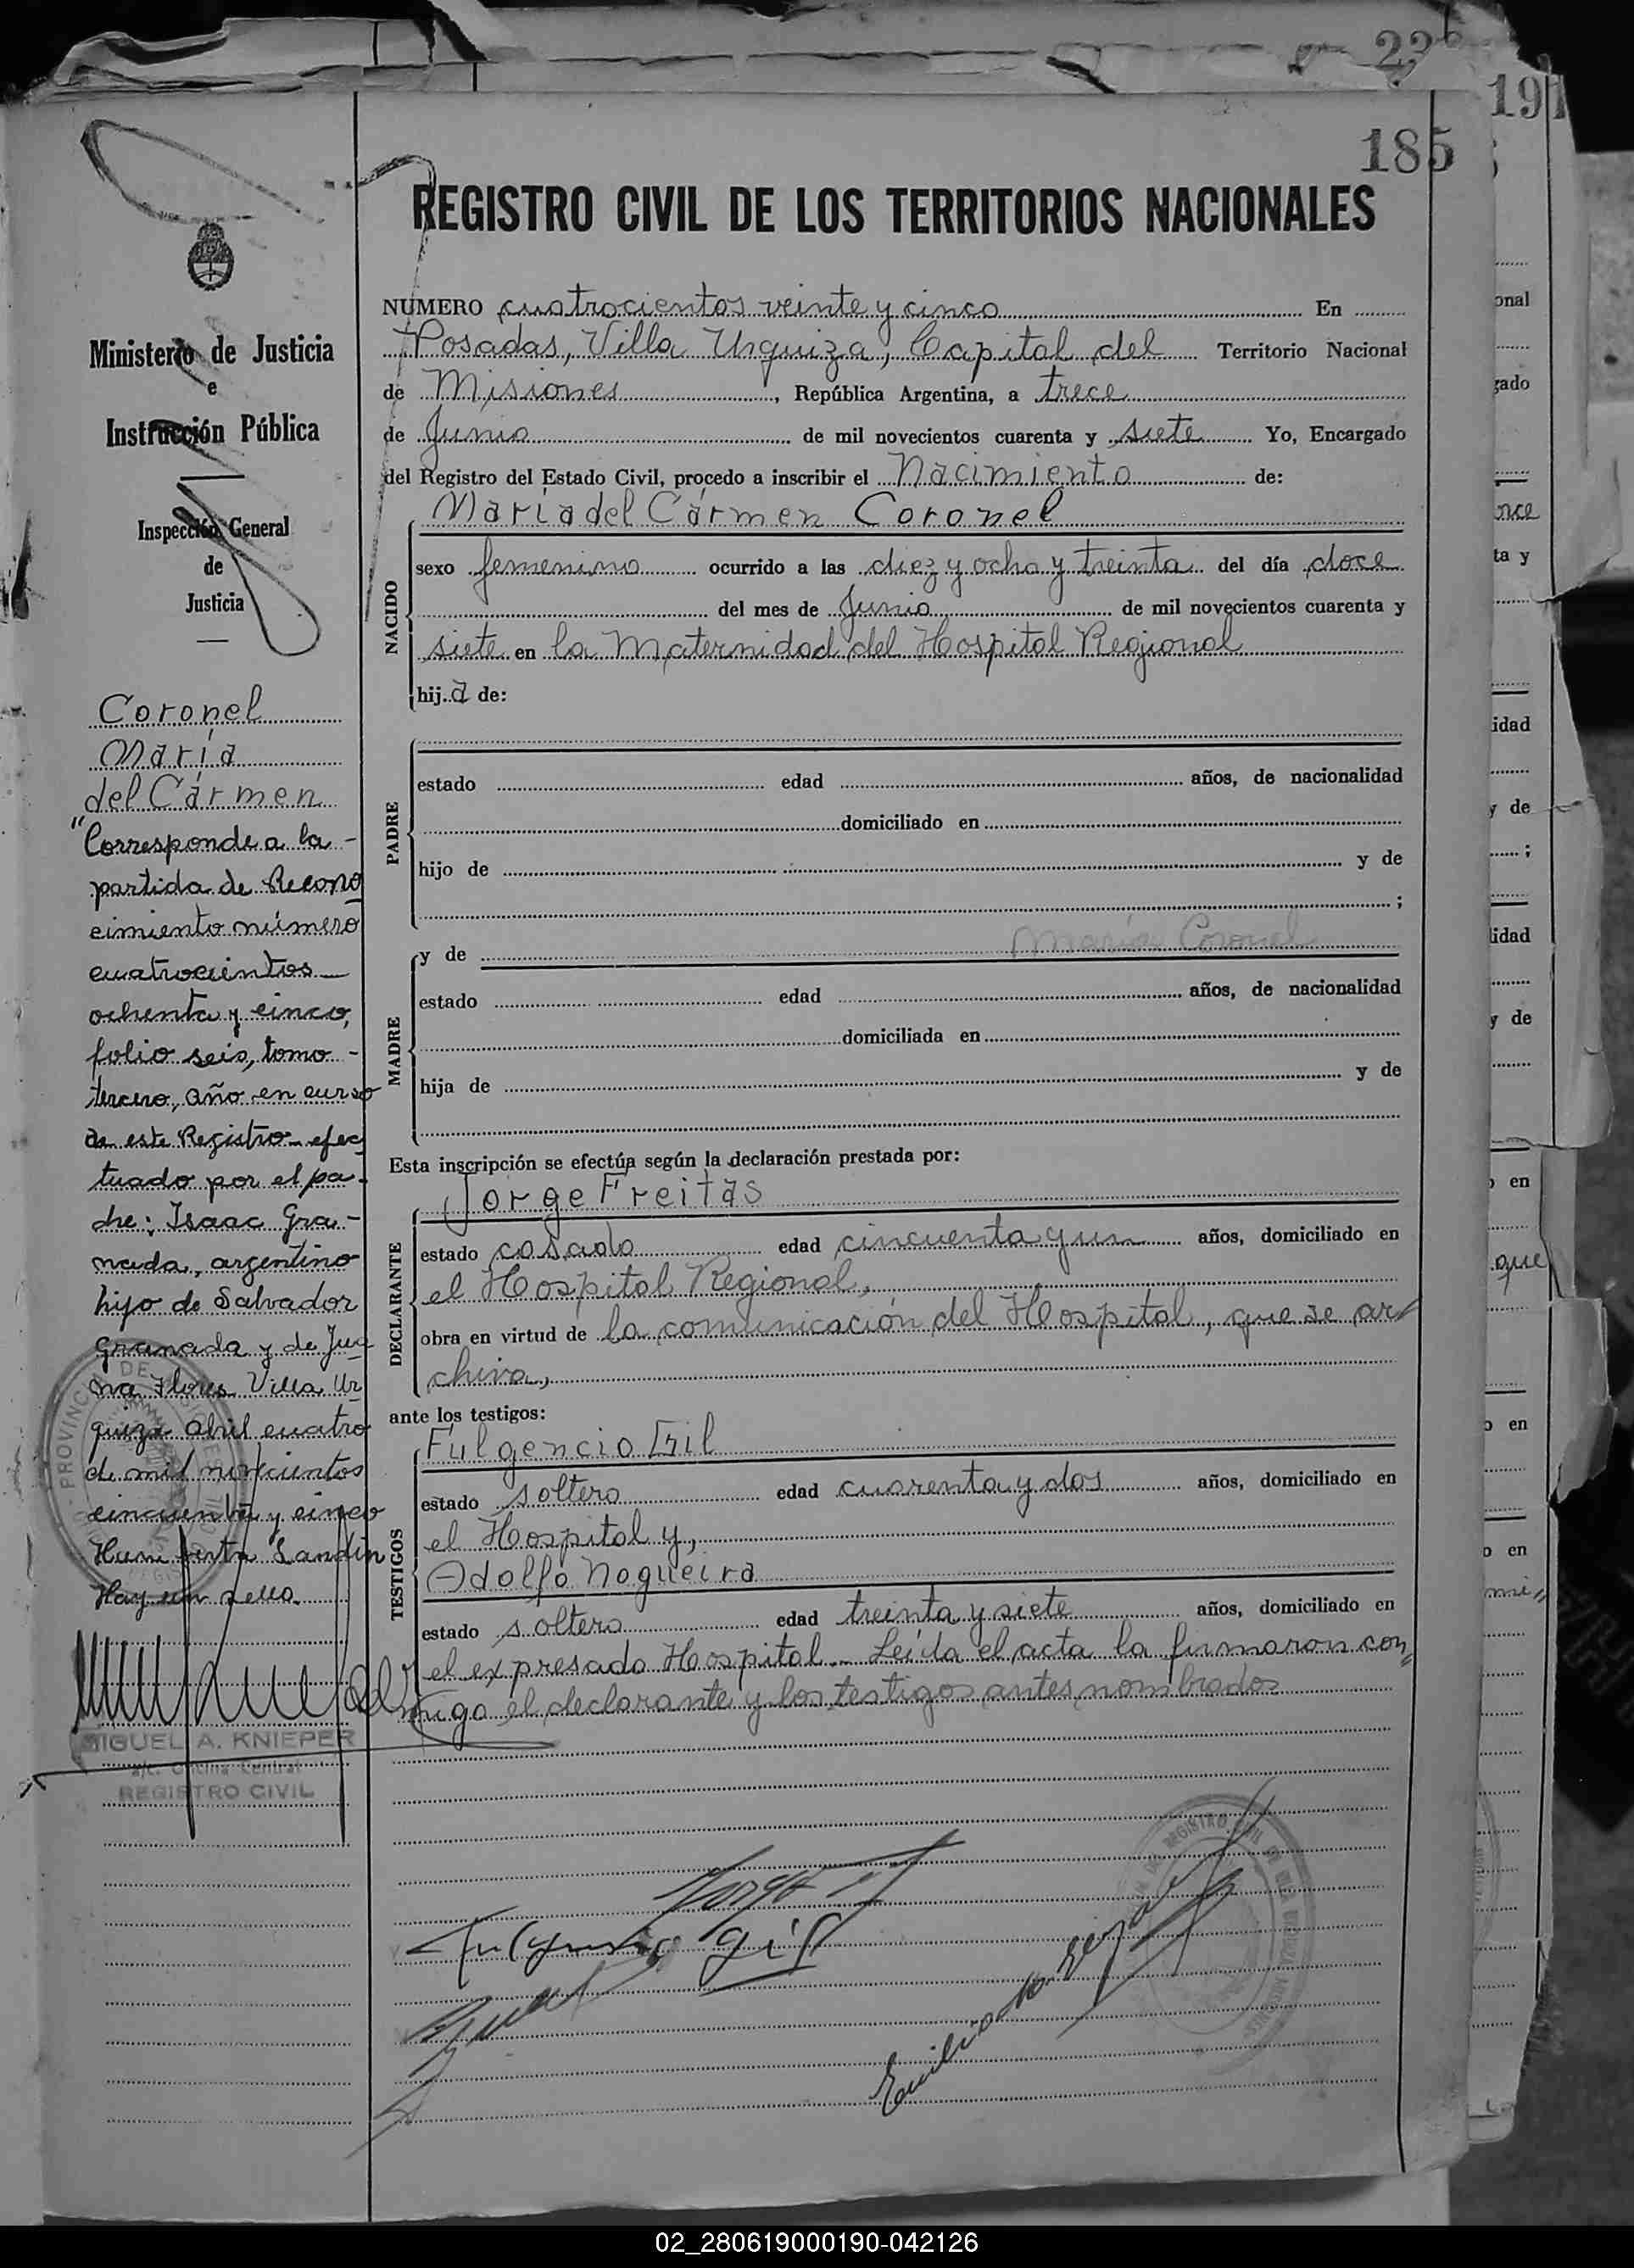 226
191
185
REGISTRO CIVIL DE LOS TERRITORIOS NACIONALES
Ministerio de Justicia
e
Instrucción Pública
Inspección General
de
Justicia
Coronel
María
del Cármen
"Corresponde a la -
partida de Recono
cimiento número
cuatrocientos
ochenta y cinco,
folio seis, tomo -
tercero, año en curso
de este Registro efec
tuado por el pa-
dre: Isaac Gra-
nada, argentino
hijo de Salvador
Granada y de Jua
na Flores Villa Ur
quiza abril cuatro
de mil novecientos
cincuenta y cinco
Landin
Hay un sello.
MIGUEL A. KNIEPER
a/c. Oficina Central
REGISTRO CIVIL
NUMERO cuatrocientos veinte y cinco En
Posadas, Villa Urquiza, Capital del Territorio Nacional
de Misiones, República Argentina, a trece
de Junio de mil novecientos cuarenta y siete Yo, Encargado
del Registro del Estado Civil, procedo a inscribir el Nacimiento de:
María del Cármen Coronel
NACIDO
sexo femenino ocurrido a las diez y ocho y treinta del día doce
del mes de Junio de mil novecientos cuarenta y
siete en la Maternidad del Hospital Regional
hij.a de:
PADRE
estado edad años, de nacionalidad
domiciliado en
hijo de y de
;
MADRE
y de María Coronel
estado edad años, de nacionalidad
domiciliada en
hija de y de
Esta inscripción se efectúa según la declaración prestada por:
Jorge Freitas
DECLARANTE
estado casado edad cincuenta y un años, domiciliado en
el Hospital Regional,
obra en virtud de la comunicación del Hospital, que se ar
chiva,
ante los testigos:
Fulgencio Gil
TESTIGOS
estado soltero edad cuarenta y dos años, domiciliado en
el Hospital y,
Adolfo Nogueira
estado soltero edad treinta y siete años, domiciliado en
el expresado Hospital.- Leída el acta la firmaron con
migo el declarante y los testigos antes nombrados
Fulgencio Gil
02_280619000190-042126